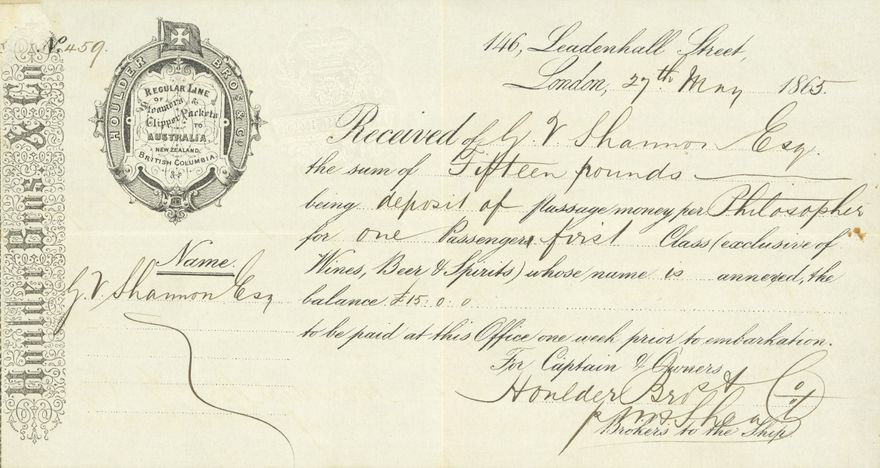 Houlder Bros. & Co
No. 459.
HOULDER BROS & Co
REGULAR LINE
OF
Steamers &
Clipper Packets
TO
AUSTRALIA
NEW ZEALAND
BRITISH COLUMBIA
&c
146, Leadenhall Street,
London, 27th May 1865.
Received of G. V Shannon Esq.
the sum of Fifteen pounds
being deposit of Passage money per Philosopher
for one Passenger, first Class (exclusive of
Wines, Beer & Spirits) whose name is annexed, the
balance £15. 0. 0
to be paid at this Office one week prior to embarkation.
Name.
G V Shannon Esq
For Captain & Owners
Houlder Bros & Co
Brokers to the Ship